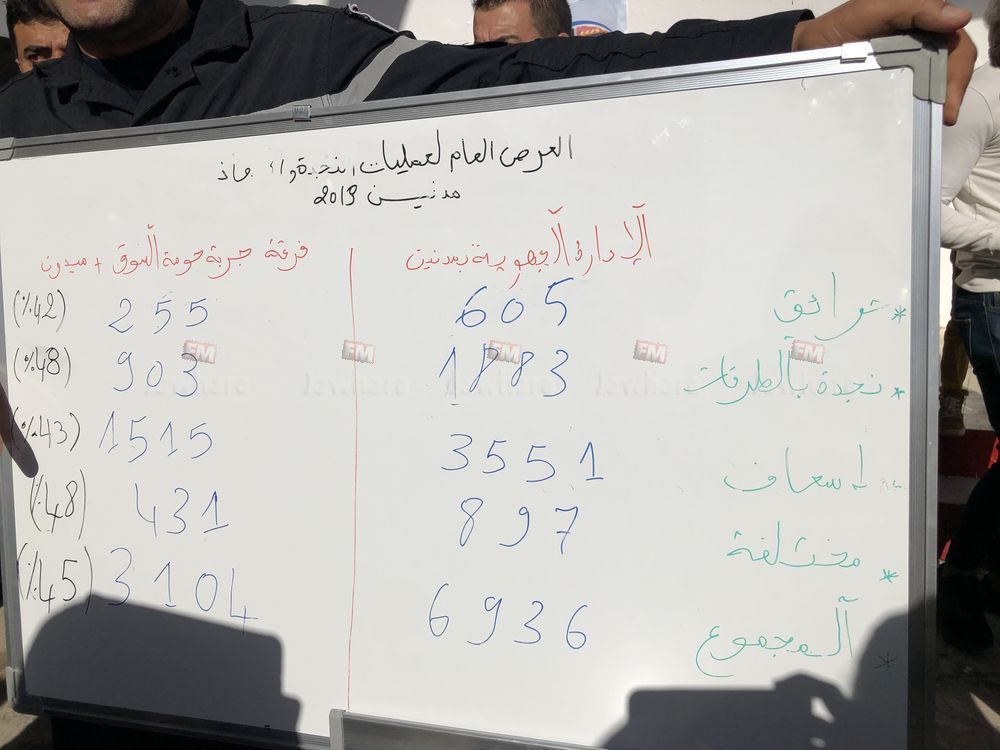 العرض العام لعمليات النجدة و
مدنين 2013
الإدارة الجهوية بمدنين
فرقة جربة حومة السوق + ميدون
* حرائق 605 255 (%42)
* نجدة بالطرقات 1883 903 (%48)
* إسعاف 3551 1515 (%43)
* مختلفة 897 431 (%48)
* المجموع 6936 3104 (%45)
Jawhara FM